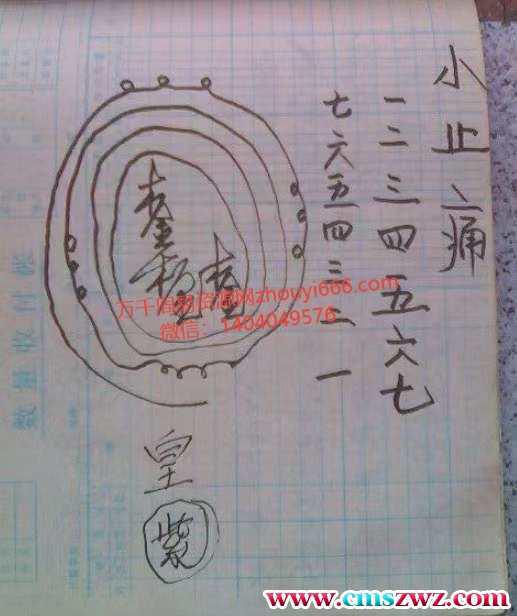 小止痛
一二三四五六七
七六五四三二一
皇
紫
数量收付帐
万千周易资源网zhouyi666.com
微信：1404049576
www.cmszwz.com